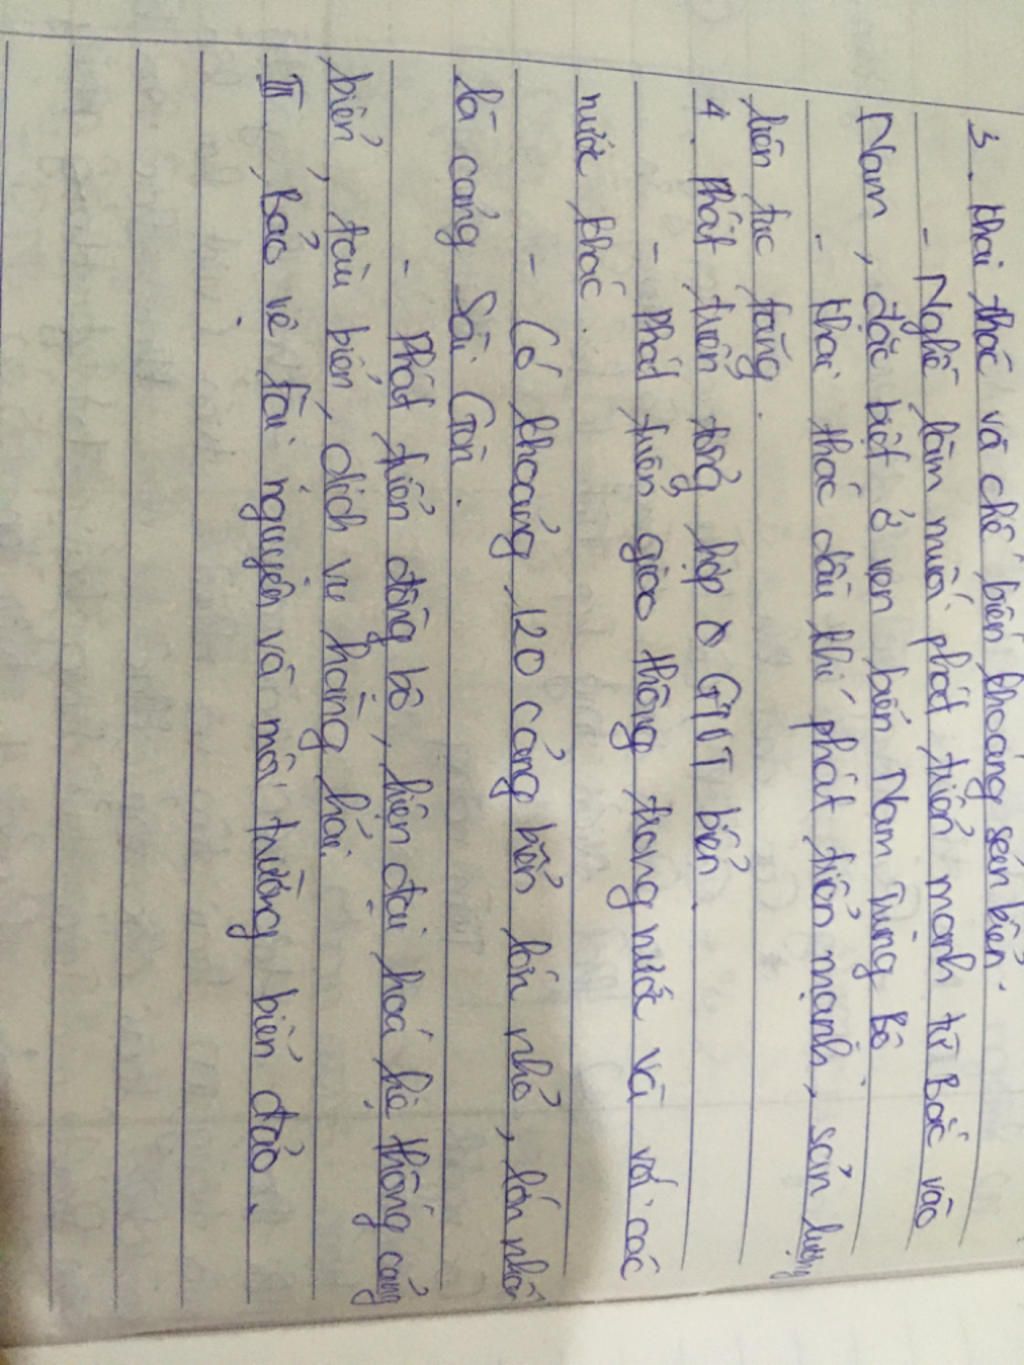 3. Khai thác và chế biến khoáng sản biển.
- Nghề làm muối phát triển mạnh từ Bắc vào
Nam, đặc biệt ở ven biển Nam Trung Bộ
- Khai thác dầu khí phát triển mạnh, sản lượng
liên tục tăng.
4. Phát triển tổng hợp GTVT biển.
- Phát triển giao thông trong nước và với các
nước khác.
- Có khoảng 120 cảng biển lớn nhỏ, lớn nhất
là cảng Sài Gòn.
- Phát triển đồng bộ, hiện đại hoá hệ thống cảng
biển, tàu biển, dịch vụ hàng hải.
III, Bảo vệ tài nguyên và môi trường biển đảo.